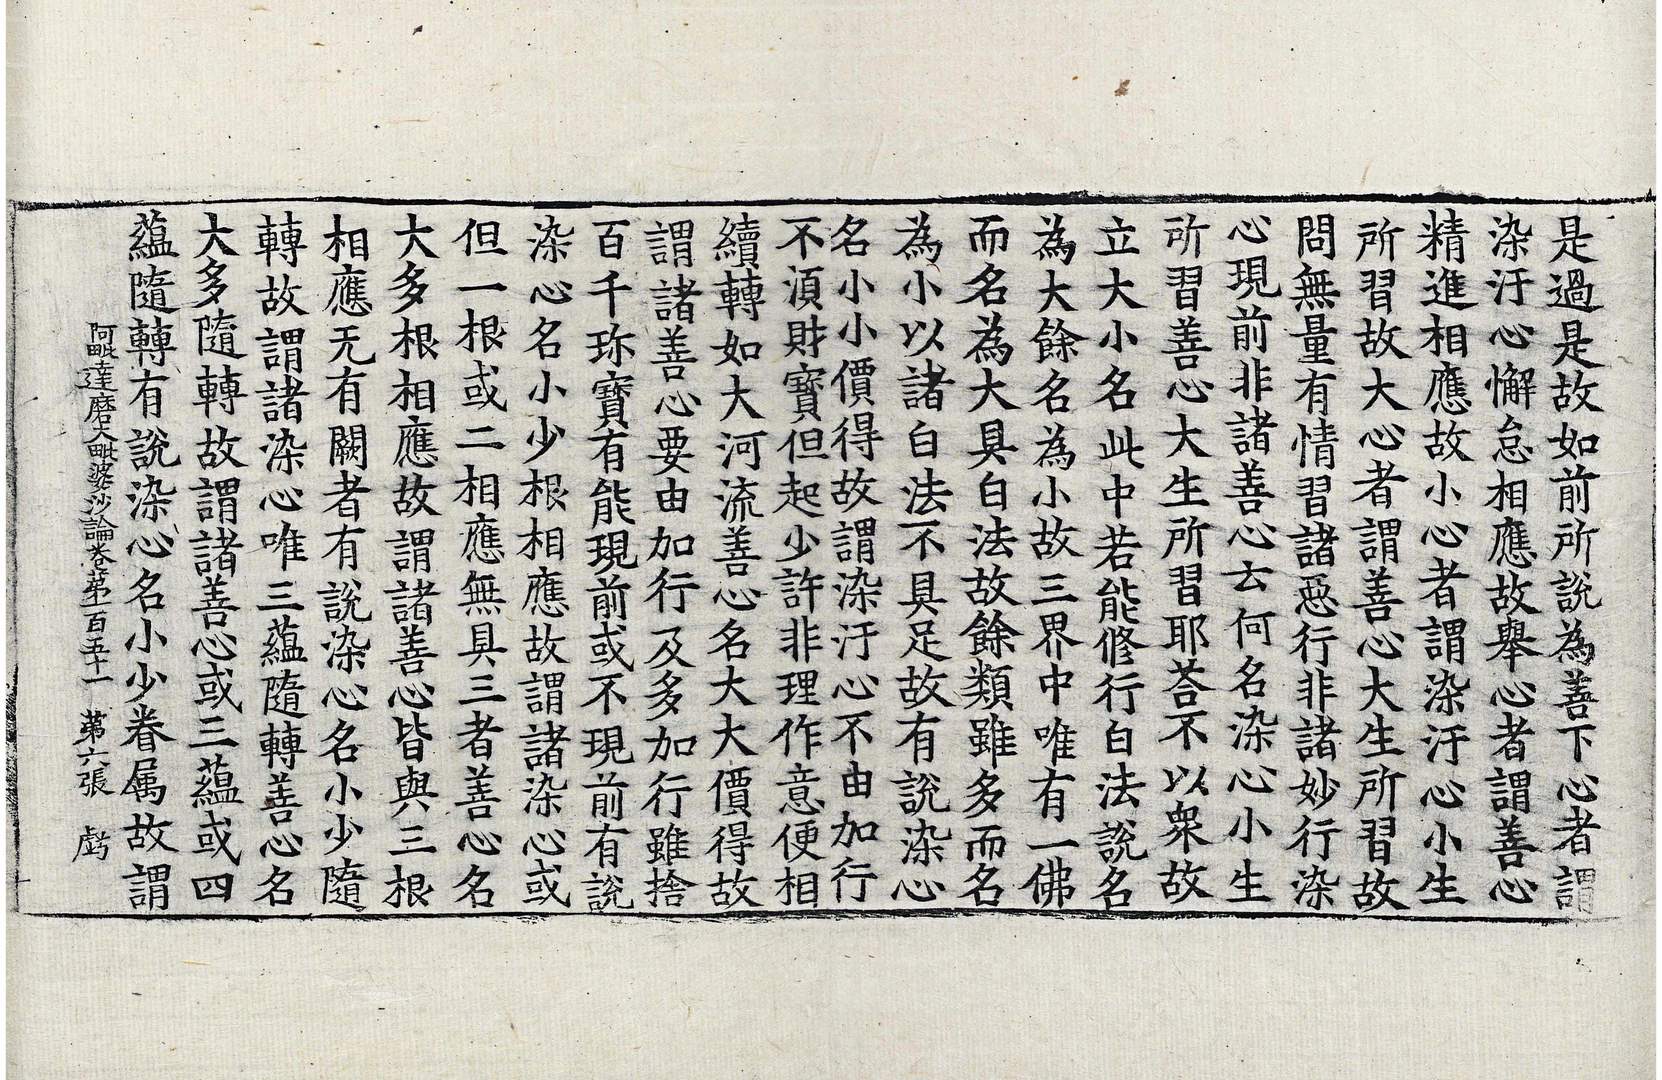 是過是故如前所說為善下心者謂
染汙心懈怠相應故舉心者謂善心
精進相應故小心者謂染汙心小生
所習故大心者謂善心大生所習故
問無量有情習諸惡行非諸妙行染
心現前非諸善心云何名染心小生
所習善心大生所習耶荅不以衆故
立大小名此中若能修行白法說名
為大餘名為小故三界中唯有一佛
而名為大具白法故餘類雖多而名
為小以諸白法不具足故有說染心
名小小價得故謂染汙心不由加行
不湏財寶但起少許非理作意便相
續轉如大河流善心名大大價得故
謂諸善心要由加行及多加行雖捨
百千珎寶有能現前或不現前有說
染心名小少根相應故謂諸染心或
但一根或二相應無具三者善心名
大多根相應故謂諸善心皆與三根
相應无有闕者有說染心名小少隨
轉故謂諸染心唯三蘊隨轉善心名
大多隨轉故謂諸善心或三蘊或四
蘊隨轉有說染心名小少眷属故謂
阿毗達磨大毗婆沙論卷第一百五十一 第六張